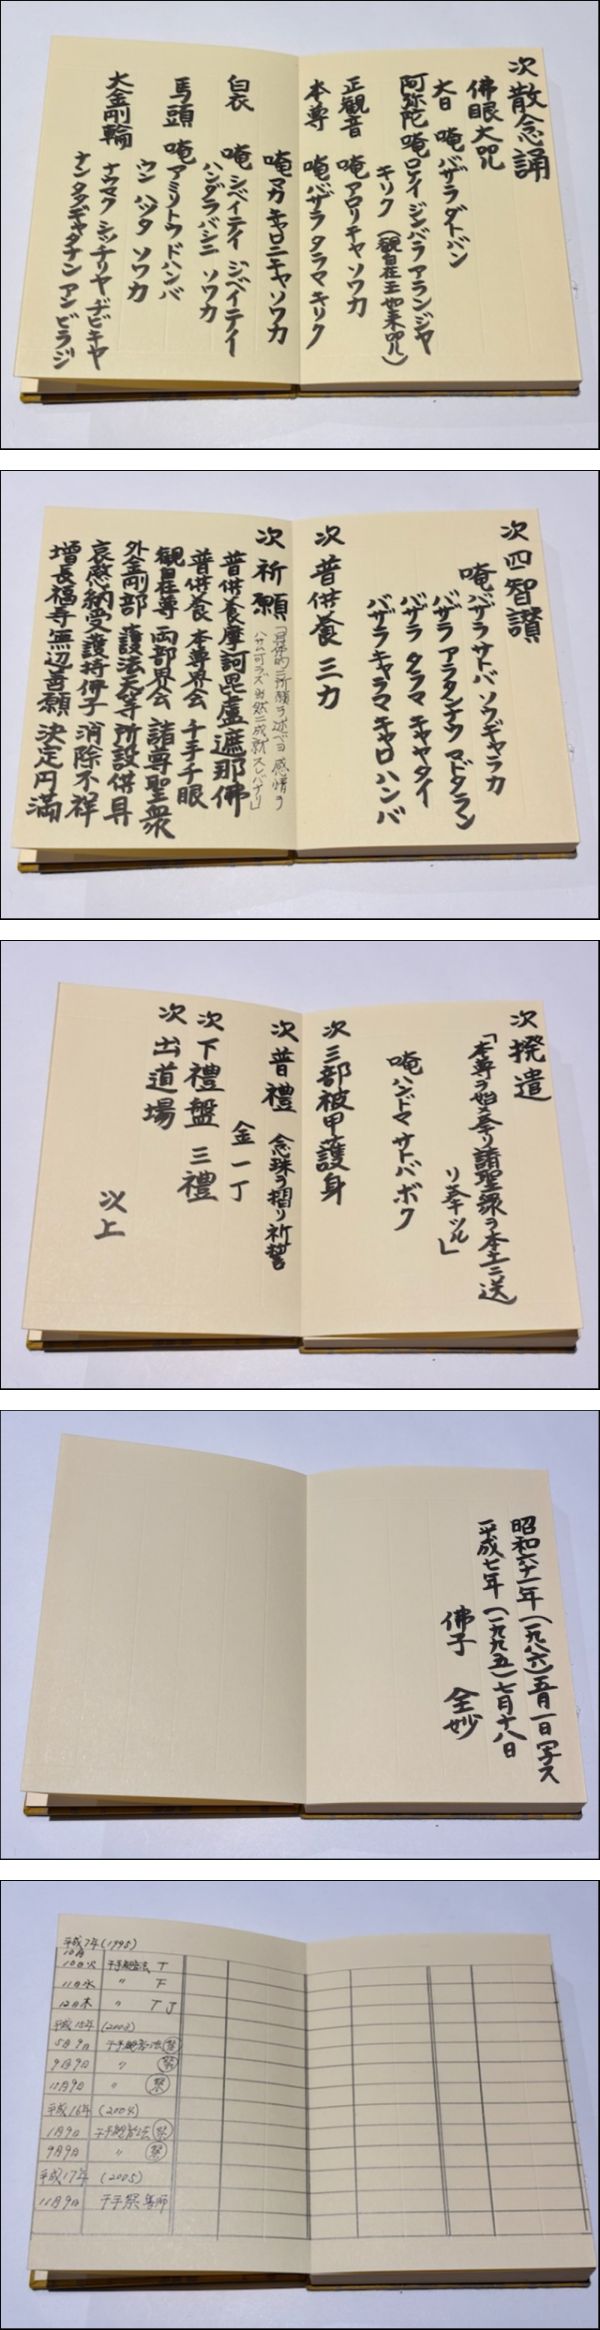 次 散念誦
佛眼大呪
大日 唵 バザラ ダトバン
阿弥陀 唵 ロケイ ジンバラ アランジャ
キリク （観自在王如来呪）
正観音 唵 アロリキャ ソワカ
本尊 唵 バザラ タラマ キリク
唵 マカ キャロニキャ ソワカ
白衣 唵 シベイテイ ジベイテイ
ハンダラ バシニ ソワカ
馬頭 唵 アミリトウ ドハンバ
ウン ハッタ ソワカ
大金剛輪 ナウマク シッチリヤ ヂビキヤ
ナン タタギャタナン アン ビラジ
次 四智讃
唵 バザラ サトバ ソウギャラカ
バザラ アラタンナウ マドタラン
バザラ タラマ キャヤタイ
バザラ キャラマ キャロ ハンバ
次 普供養 三力
次 祈願 「具体的ニ祈願ヲ述ベヨ 感情ヲ
ハサムベカラズ 当然ニ成就スレバナリ」
普供養摩訶毘盧遮那佛
普供養 本尊界会 千手千眼
観自在尊 両部界会 諸尊聖衆
外金剛部 護法天等 所設供具
哀愍納受 護持佛子 消除不祥
増長福寿 無辺善願 決定円満
次 撥遣
「本尊ヲ始メ奉リ諸聖衆ヲ本土ニ送
リ奉ツル」
唵 ハンドマ サトバ ボク
次 三部被甲護身
次 普禮 念珠ヲ摺リ祈誓
金 一丁
次 下禮盤 三禮
次 出道場
以上
昭和六十一年（一九八六）五月一日写ス
平成七年（一九九五）七月十八日
佛子 全妙
平成7年(1995)
10月
10日火 千手観音法 T
11日水 〃 F
12日木 〃 T J
平成15年 (2003)
5月9日 千手観音法 祭
9月9日 〃 祭
11月9日 〃 祭
平成16年 (2004)
1月9日 千手観音法 祭
9月9日 〃 祭
平成17年 (2005)
11月9日 千手祭 導師